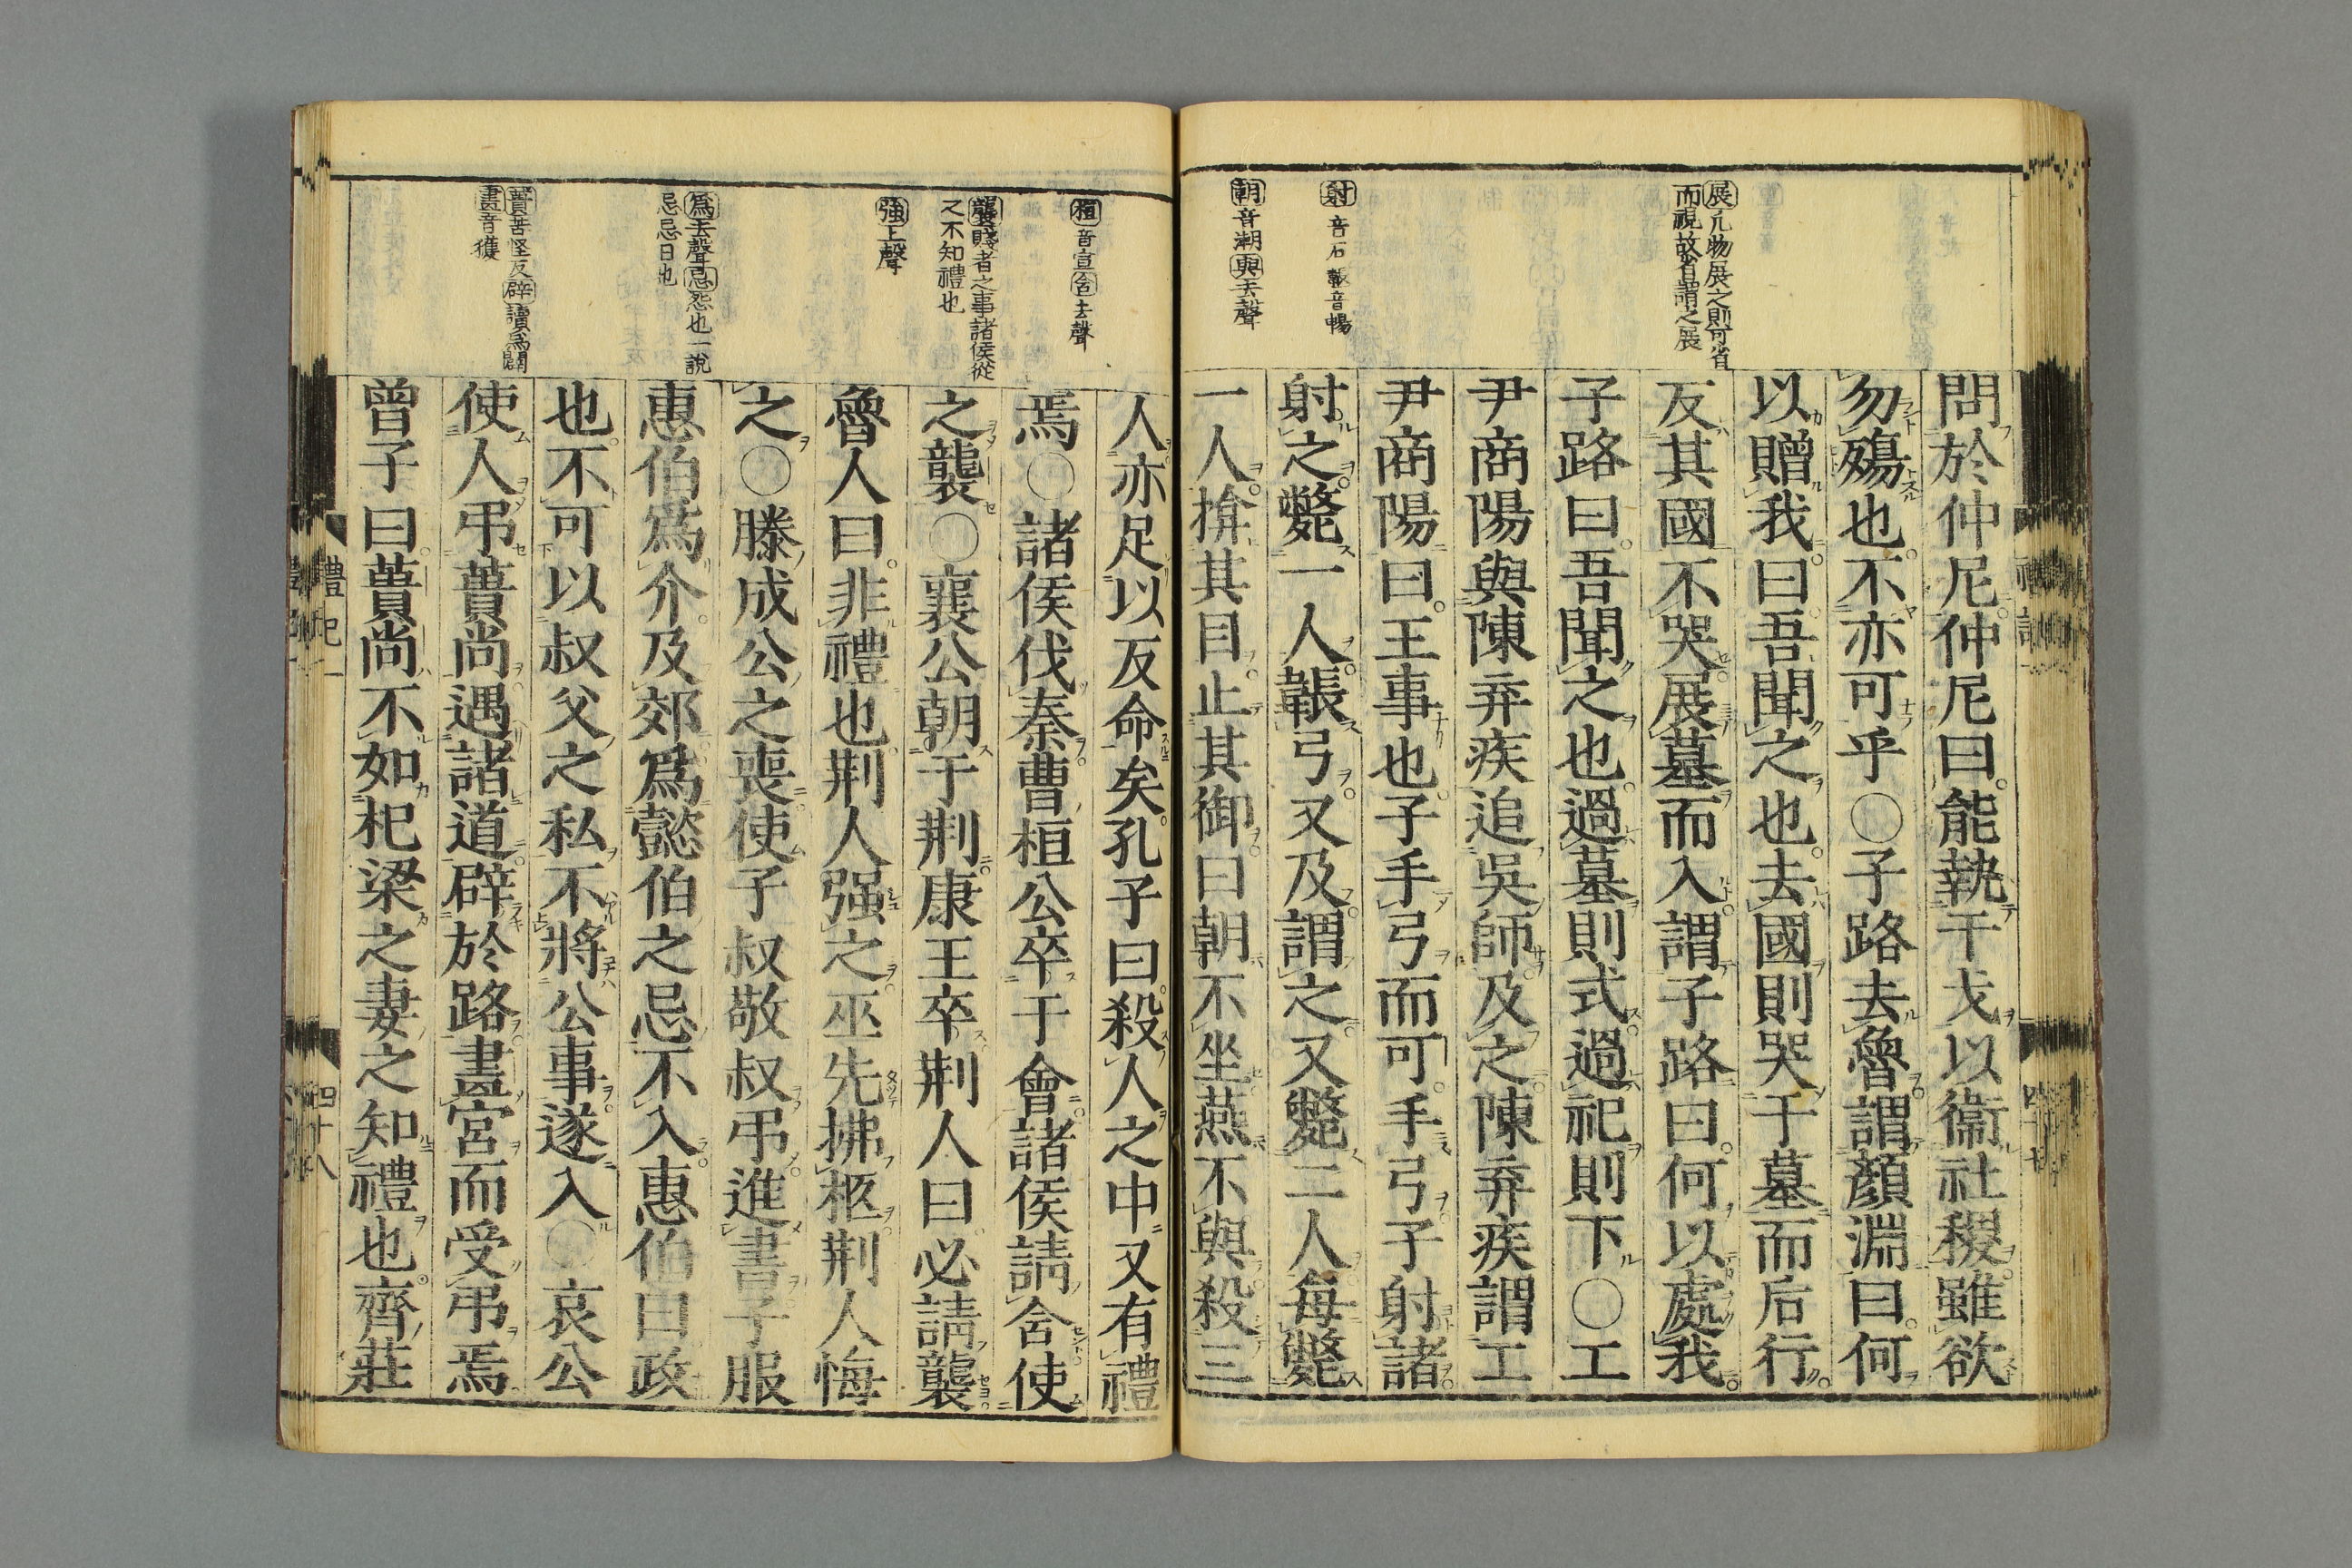 展凡物展之則可省
而視故省謂之展
射音石韔音暢
朝音潮與去聲
問於仲尼仲尼曰能執干戈以衞社稷雖欲
勿殤也不亦可乎○子路去魯謂顏淵曰何
以贈我曰吾聞之也去國則哭于墓而后行
反其國不哭展墓而入謂子路曰何以處我
子路曰吾聞之也過墓則式過祀則下○工
尹商陽與陳弃疾追吳師及之陳弃疾謂工
尹商陽曰王事也子手弓而可手弓子射諸
射之斃一人韔弓又及謂之又斃二人每斃
一人揜其目止其御曰朝不坐燕不與殺三
桓音宣舍去聲
襲賤者之事諸侯從
之不知禮也
强上聲
爲去聲忌怨也一說
忌忌日也
蕢苦怪反辟讀爲闢
畫音獲
人亦足以反命矣孔子曰殺人之中又有禮
焉○諸侯伐秦曹桓公卒于會諸侯請舍使
之襲○襄公朝于荆康王卒荆人曰必請襲
魯人曰非禮也荆人强之巫先拂柩荆人悔
之○滕成公之喪使子叔敬叔弔進書子服
惠伯爲介及郊爲懿伯之忌不入惠伯曰政
也不可以叔父之私不將公事遂入○哀公
使人弔蕢尚遇諸道辟於路畫宮而受弔焉
曾子曰蕢尚不如杞梁之妻之知禮也齊莊
禮記一
四十八